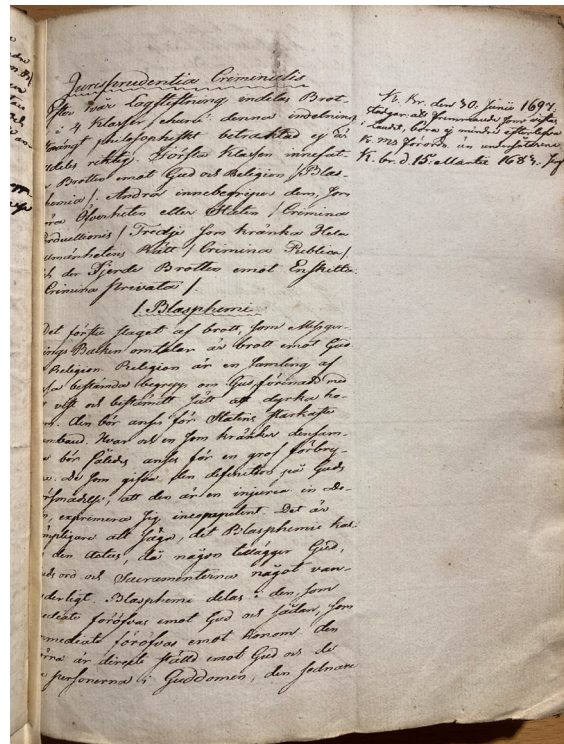 Jurisprudentia Criminalis
Efter vår Lagstiftning indelas Brot-
i 4 Klasser, churu denna indelning
strängt philosophiskt betraktad ej är
aldeles riktig. Första Klassen innefat-
Brotten emot Gud och Religion /Blas-
phemia/. Andra innebegriper dem, som
röra Öfverheten eller Staten /Crimina
Perduellionis/ Tredje som kränka Hela
Allmänhetens Rätt /Crimina Publica/
och den Fjerde Brotten emot Enskilta
Crimina privata/.
1. Blasphemi.
Det första slaget af brott, som Missger-
nings Balken omtalar är brott emot Gud
Religion. Religion är en samling af
vissa bestämda begrepp om Gud, förenadt med
visst och bestämdt sätt att dyrka ho-
nom. Den bör anses för Statens starkaste
band. Hvar och en som kränker densam-
bör således anses för en grof förbry-
De som gifva den definition på Guds
försmädelse, att den är en injuria in De-
um, exprimera sig incompetent. Det är
lämpligare att säga, det Blasphemie kal-
den actus, då någon tillägger Gud,
Guds ord och Sacramenterna något van-
vörderligt. Blasphemi delas i den, som
immediate föröfvas emot Gud och sådan, som
mediate föröfvas emot Honom den
förra är direkte ställd emot Gud och de
personerna i Guddomen, den sednare
K. Br. den 30. Junii 1697.
stadgar att främmande som vistas
i Landet, böra ej mindre efterlefva
K. Ms Förordn. än undersåterne
K. br. d. 15 Martii 1684.